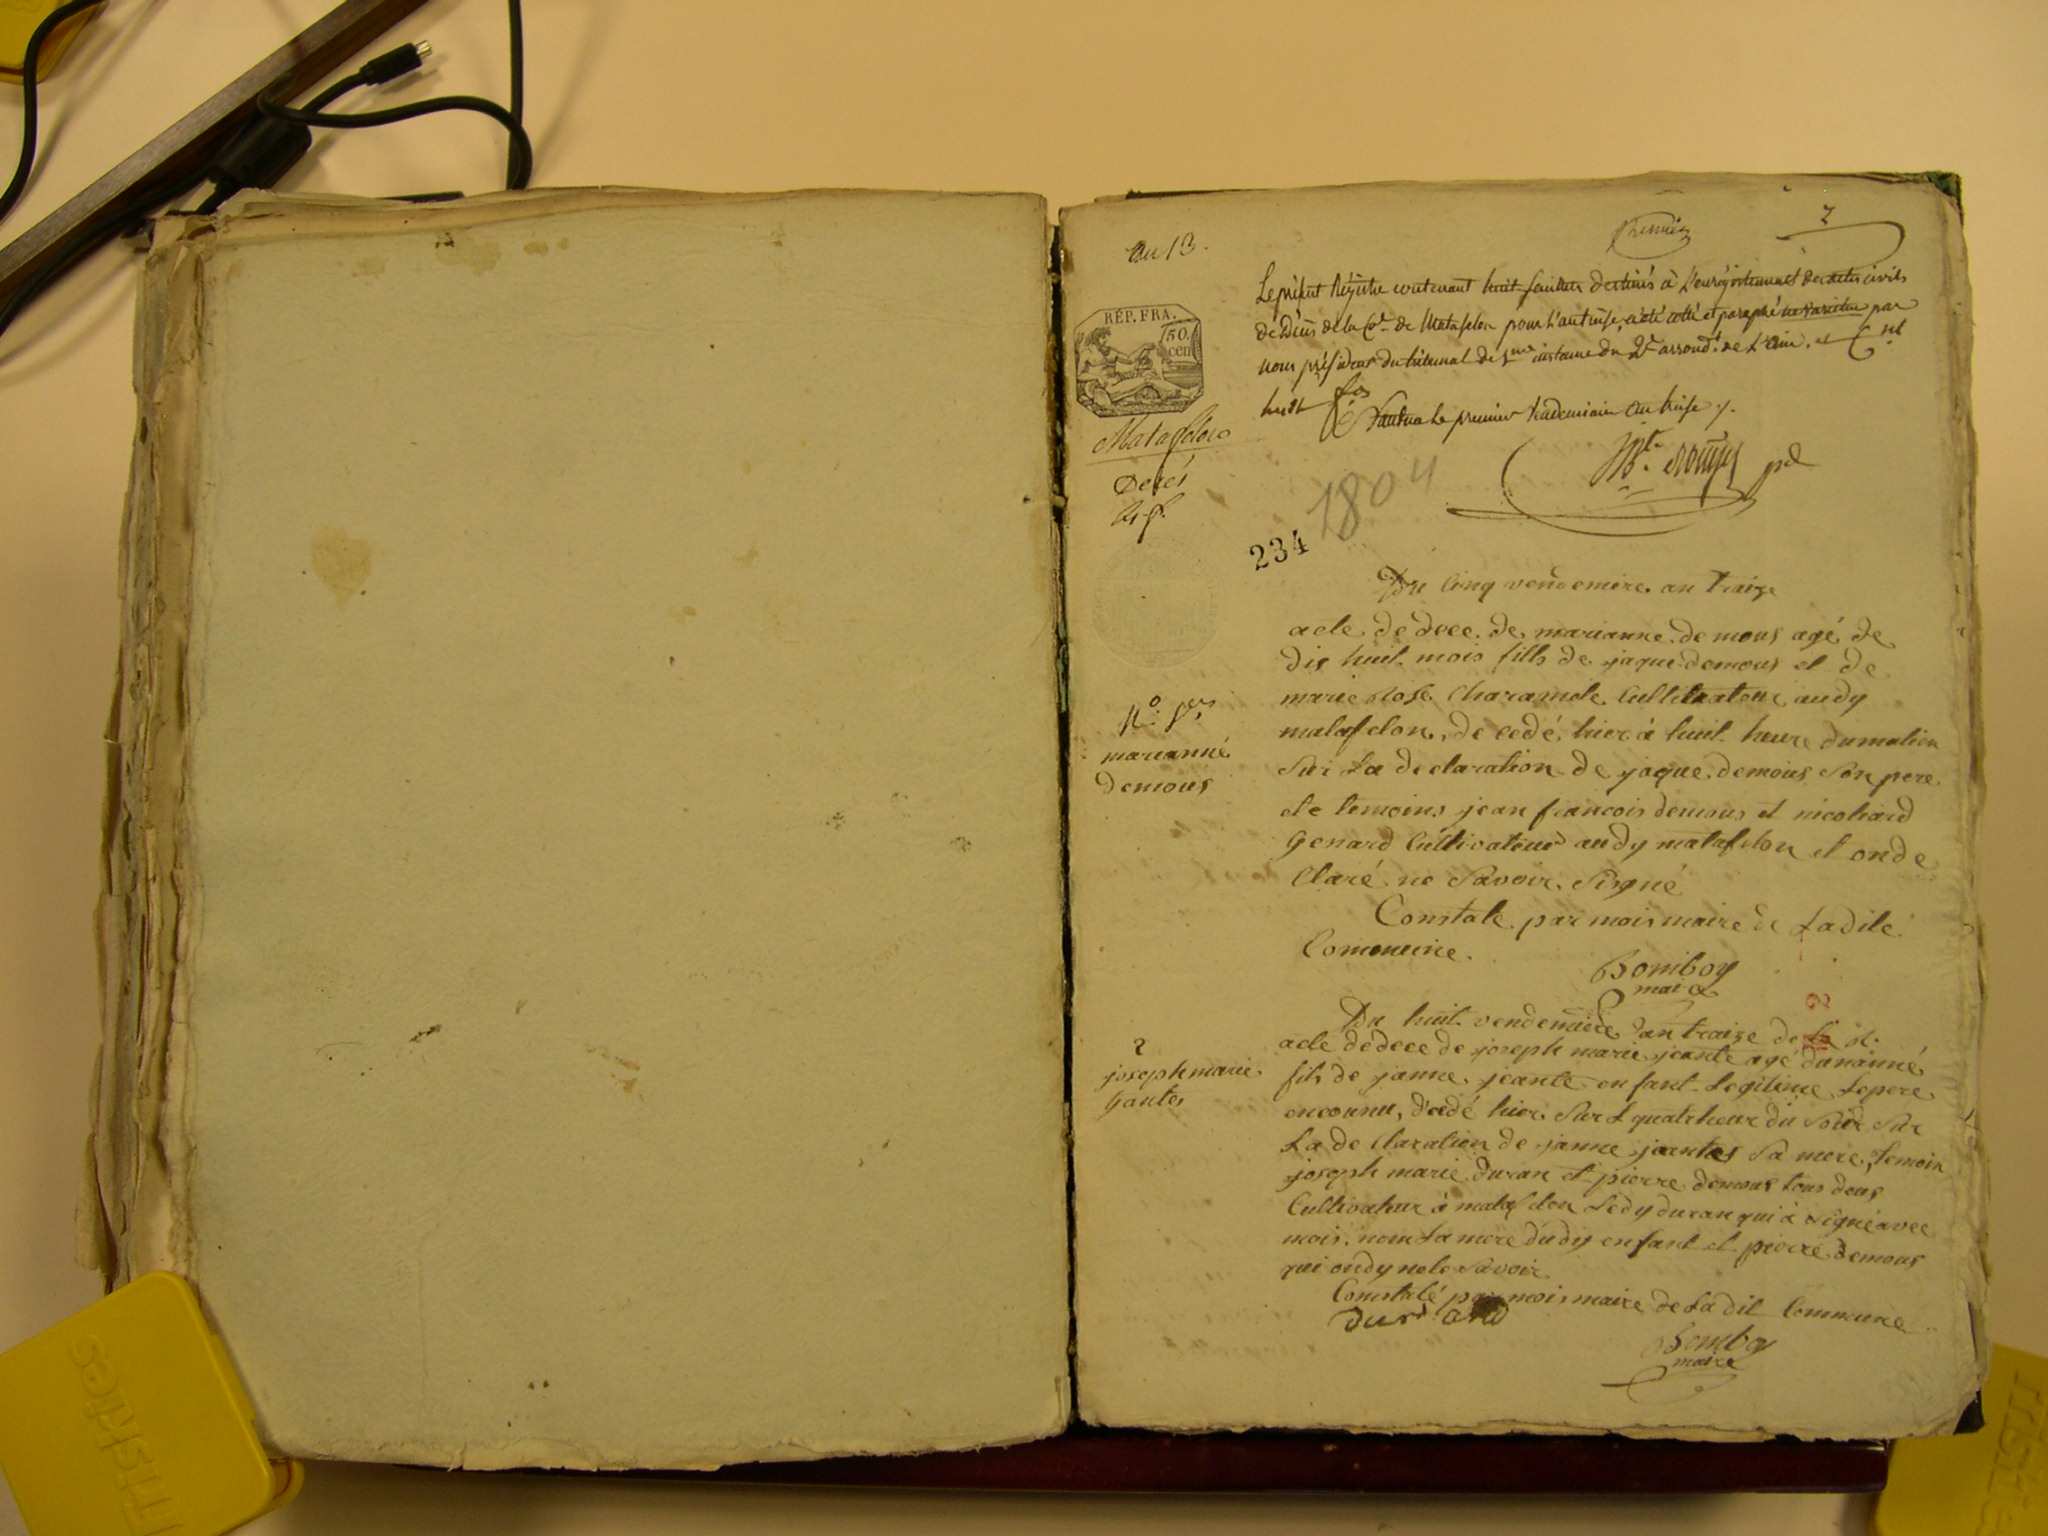 an 13.
premier
Le présent Régistre contenant huit feuillets destinés à l'enregistrement des actes civils
de Décès de la Cne. de Matafelon pour l'an treise, a été cotté et paraphé par
nous président du tribunal de 1ere instance du 2e arrond.t de l'ain.
huit
Nantua le premier vendemiaire an treise
RÉP. FRA.
50
cen
Matafelon
Decés
1804
234
Du cinq vendemire. an traize
acte de dece. de. marianne. demous agé de
dix huit mois fills de jaque demous et de
marie Rose Charamele Cultivateur audy
matafelon, de cedé hier à huit heure dumatien
sur La declaration de jaque. demous son pere
ete temoins jean francois demous et nicohard
Genard Cultivateur audy matafelon et onde
Claré ne Savoir. Signé
Constate. par mois maire de Ladite
Commune.
Bomboy
maire
No. 1er
marianne
demous
Du huit vendemiere an traize de la R.
acte dedece de joseph marie jeante agé dunainné
fils de janne jeante enfant Legitime Lepere
enconnu, décedé hier. Sur L quatrheur du Soir Sur
La de Claration de janne jeantes Sa mere, temoin
joseph marie duran et pierre demous tous deus
Cultivateur à matafelon Ledy duran qui à Signé avec
mois. nom La mere dudy enfant et pierre demous
qui ondy nele Savoir
Constaté par mois maire de Ladit Commune
Bomboy
maire
2
joseph marie
Gantes
Tiskites